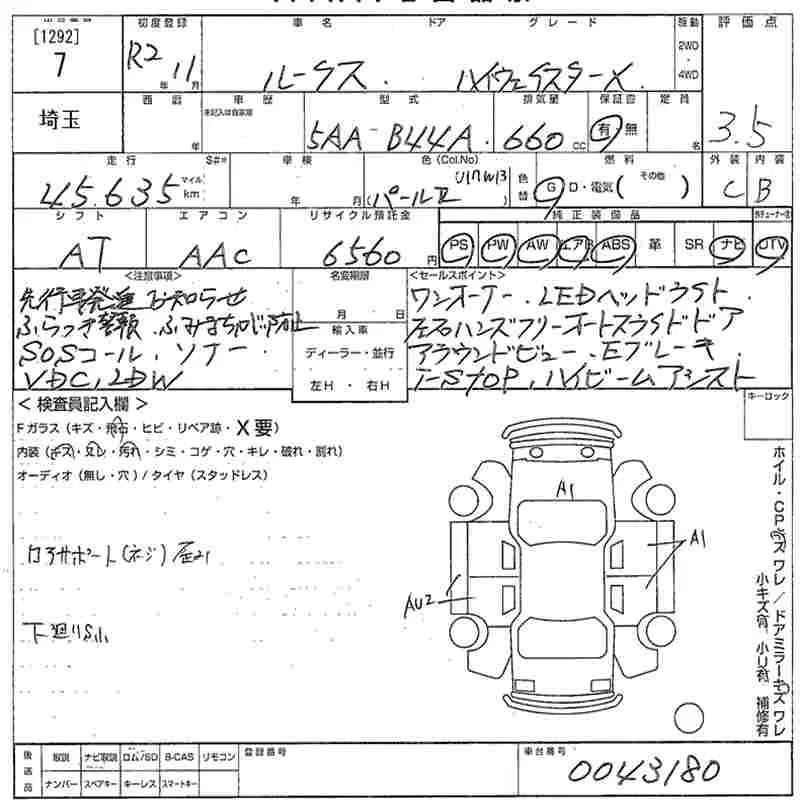 [1292]
7
初度登録
車名
ドア
グレード
駆動
評価点
R2年 11月
ルークス
ハイウェイスターX
2WD
・
4WD
埼玉
車歴
未記入は自家用
型式
排気量
保証書
定員
5AA-B44A
660 cc
有・無
名
3.5
走行
S#*
車検
色(Col.No)
色替
燃料
外装
内装
45,635
マイル
km
年
月
(パールII
)
G・D・電気(その他 )
C
B
シフト
エアコン
リサイクル預託金
純正装備品
AT
AAC
6560円
PS
PW
AW
エアB
ABS
革
SR
ナビ
DTV
<注意事項>
名変期限
<セールスポイント>
先行車発進お知らせ
月 日
ワンオーナー. LEDヘッドライト
ふらつき警報. ふみまちがい防止
輸入車
左右ハンズフリーオートスライドドア
SOSコール. ソナー.
ディーラー・並行
アラウンドビュー. Eブレーキ
VDC, LDW
左H ・ 右H
I-STOP. ハイビームアシスト
<検査員記入欄>
キーロック
Fガラス(キズ・飛石・ヒビ・リペア跡・X要)
内装(キズ・ヌレ・汚れ・シミ・コゲ・穴・キレ・破れ・割れ)
オーディオ(無し・穴)/タイヤ(スタッドレス)
A1
A1
AU2
コアサポート(ネジ)歪み
下廻りS小
ホイル・CPキズ ワレ/ドアミラーキズ ワレ
小キズ有 小凹有 補修有
後送品
取説
ナビ取説
ロム/SD
B-CAS
リモコン
登録番号
車台番号
ナンバー
スペアキー
キーレス
スマートキー
0043180